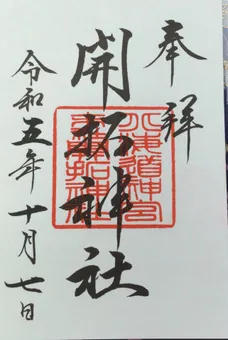 奉拝
開拓神社
北海道神宮
開拓神社
令和五年十月七日